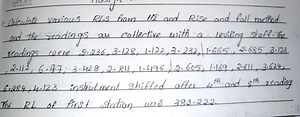 Calculate various RLs from HI and Rise and fall method
and the readings are collective with a leveling staff. The
readings were 2.236, 3.128, 1.122, 3.232, 1.665, 2.685, 3.122
2.112, 6.177, 3.428, 2.811, 1.496, 2.605, 1.169, 2.611, 3.624,
6.284, 4.123 instrument shifted after 4th and 8th reading
The RL of first station was 393.222.